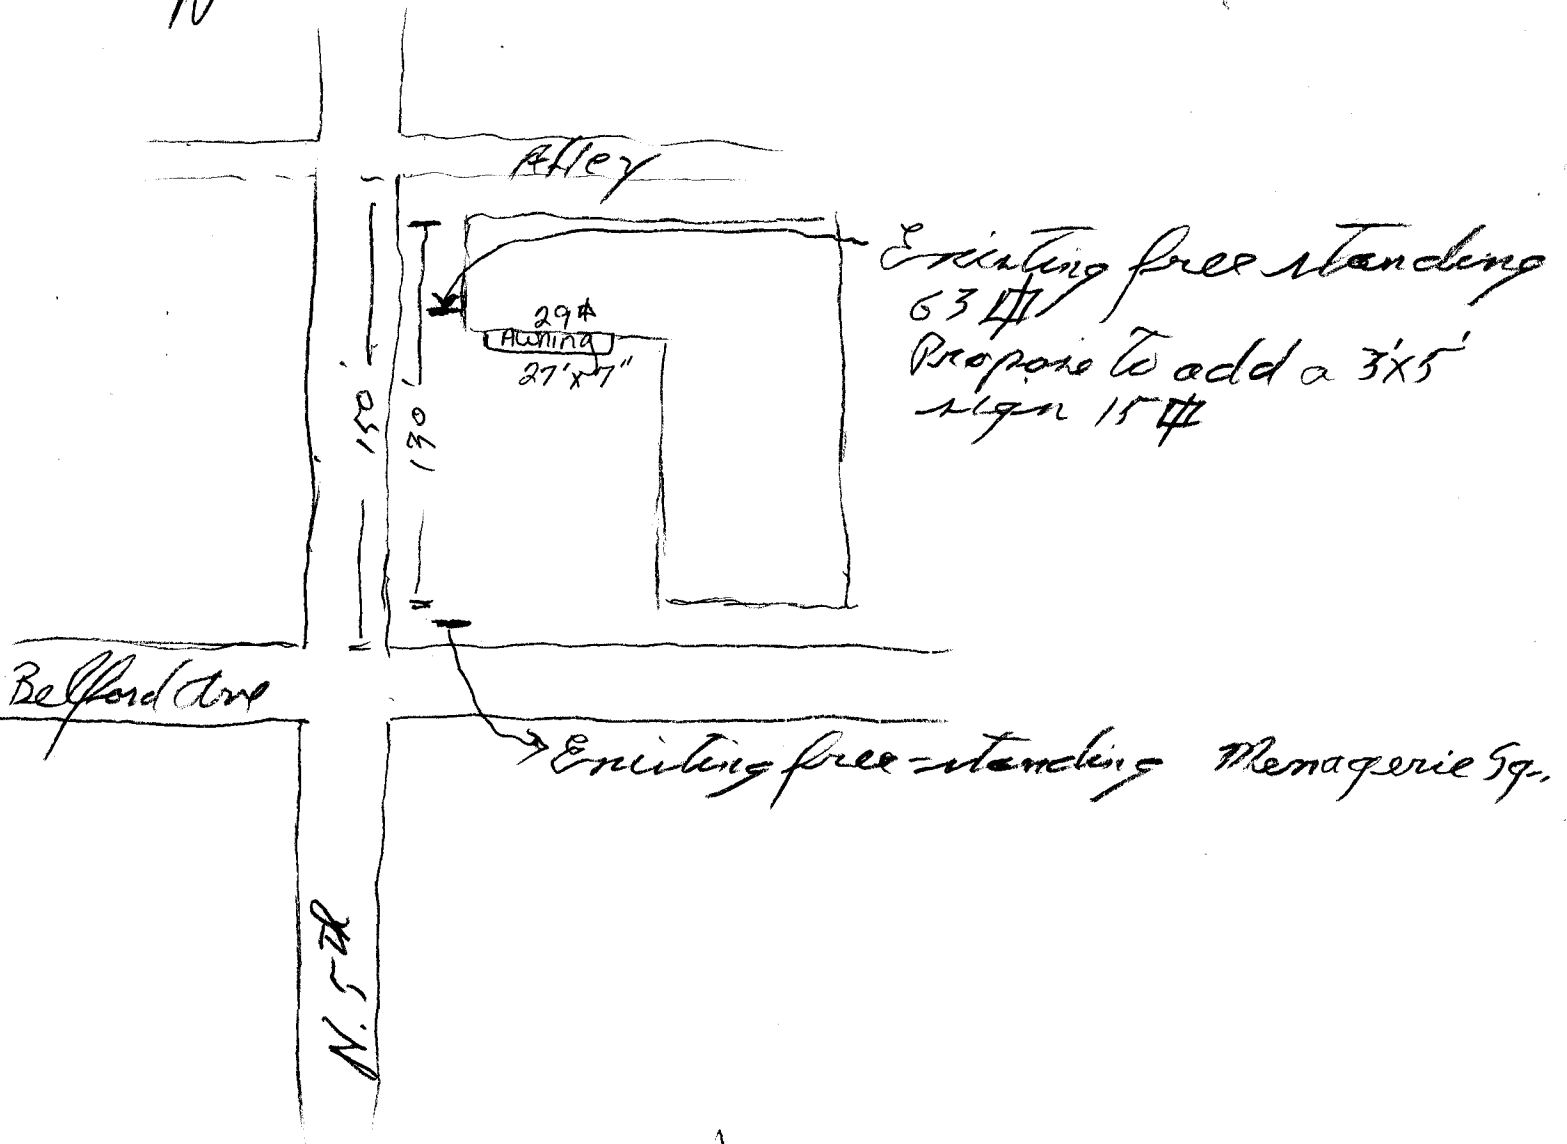 N
Alley
Existing free standing
63 ⏍
Propose to add a 3'x5'
sign 15 ⏍
29 ⏍
Awning
27' x 7"
150'
130'
Belford Ave
Existing free-standing Menagerie Sq.
N. 5th